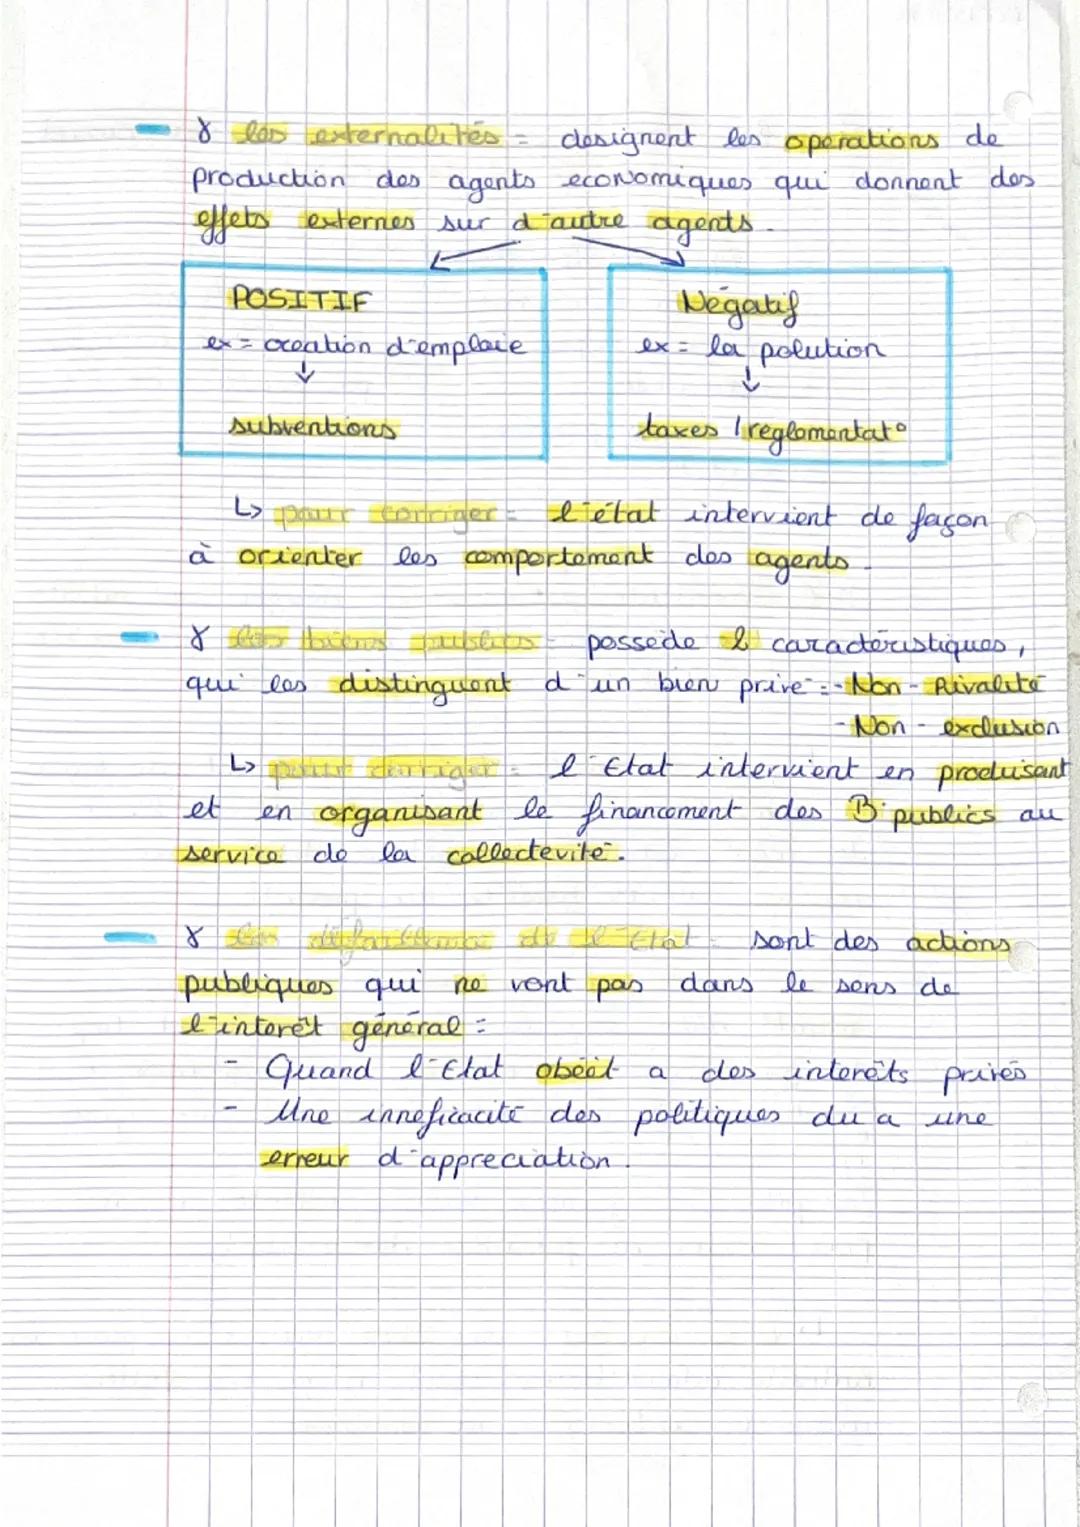 Ɣ les externalités = designent les operations de
production des agents economiques qui donnent des
effets externes sur d'autre agents.
POSITIF
ex = creation d'emploie
↓
subventions
Négatif
ex = la polution
↓
taxes / reglementat°
↳ pour corriger = l'état intervient de façon
à orienter les comportement des agents.
Ɣ les biens publics = possède 2 caractéristiques,
qui les distinguent d'un bien privé = - Non - Rivalité
- Non - exclusion
↳ pour corriger = l'Etat intervient en produisant
et en organisant le financement des B. publics au
service de la collectevité.
Ɣ les défaillance de l'Etat = sont des actions
publiques qui ne vont pas dans le sens de
l'interêt général =
- Quand l'Etat obéit a des interêts privés
- Une inneficacité des politiques du a une
erreur d'appreciation.